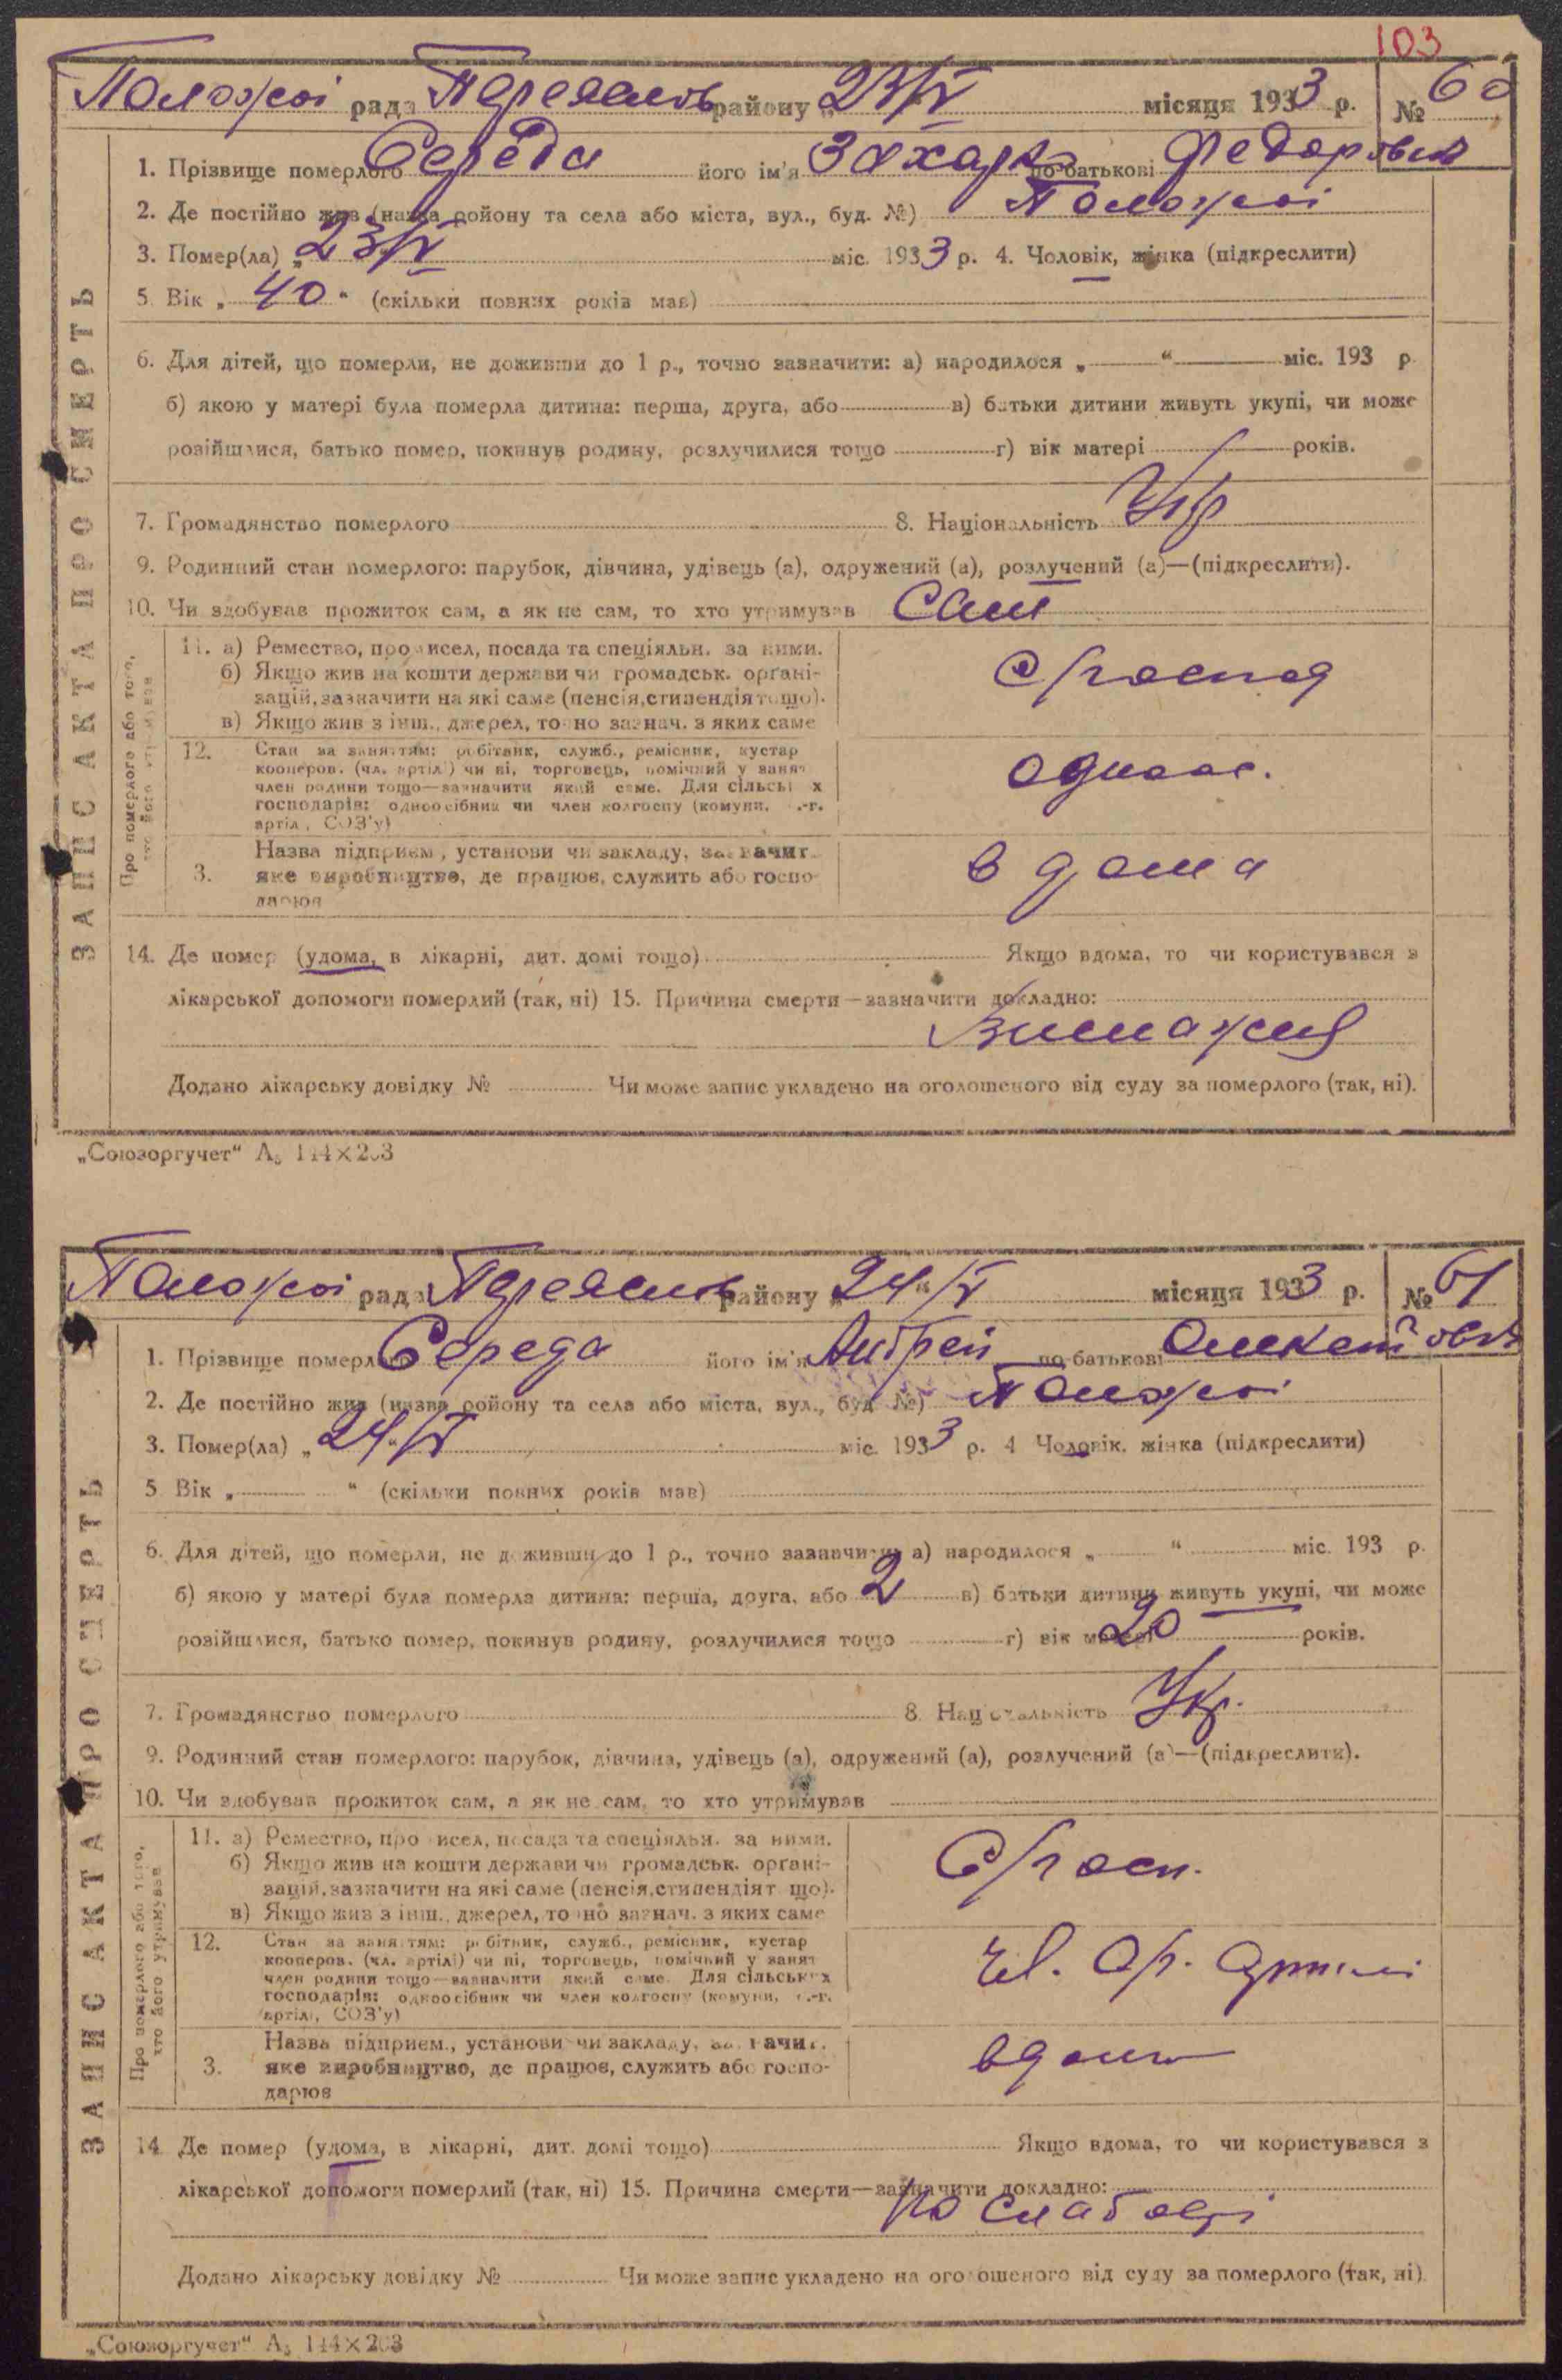 103
Положої рада Переяслов району „23/V місяця 1933 р. № 60
ЗАПИС АКТА ПРО СМЕРТЬ
1. Прізвище померлого Середа його ім'я Захарь по-батькові Федорович
2. Де постійно жив (назва ройону та села або міста, вул., буд. №) Положої
3. Помер(ла) „23/V міс. 1933 р. 4. Чоловік, жінка (підкреслити)
5. Вік „40“ (скільки повних років мав)
6. Для дітей, що померли, не доживши до 1 р., точно зазначити: а) народилося „ “ міс. 193 р.
б) якою у матері була померла дитина: перша, друга, або в) батьки дитини живуть укупі, чи може
розійшлися, батько помер, покинув родину, розлучилися тощо г) вік матері років.
7. Громадянство померлого 8. Національність Укр
9. Родинний стан померлого: парубок, дівчина, удівець (а), одружений (а), розлучений (а)—(підкреслити).
10. Чи здобував прожиток сам, а як не сам, то хто утримував Сам
Про померлого або того, хто його утримував
11. а) Ремество, промисел, посада та спеціяльн. за ними.
б) Якщо жив на кошти держави чи громадськ. органі-
зацій, зазначити на які саме (пенсія, стипендія тощо).
в) Якщо жив з інш., джерел, точно зазнач. з яких саме
С/господ
12. Стан за заняттям: робітник, служб., ремісник, кустар
кооперов. (чл. артілі) чи ні, торговець, помічний у занят
член родини тощо—зазначити який саме. Для сільських
господарів: одноосібник чи член колгоспу (комуни, с.-г.
артіл., СОЗ'у)
одноос.
3. Назва підприєм., установи чи закладу, зазначит.
яке виробництво, де працює, служить або госпо-
дарює
в дома
14. Де помер (удома, в лікарні, дит. домі тощо) Якщо вдома, то чи користувався з
лікарської допомоги померлий (так, ні) 15. Причина смерти—зазначити докладно:
Виснажия
Додано лікарську довідку № Чи може запис укладено на оголошеного від суду за померлого (так, ні).
„Союзоргучет“ А₅ 144×203
Положої рада Переяслов району „24“/V місяця 1933 р. № 61
ЗАПИС АКТА ПРО СМЕРТЬ
1. Прізвище померлого Середа його ім'я Андрей по батькові
2. Де постійно жив (назва ройону та села або міста, вул., буд. №) Положої
3. Помер(ла) „24“/V міс. 1933 р. 4 Чоловік, жінка (підкреслити)
5 Вік „ “ (скільки повних років мав)
6. Для дітей, що померли, не доживши до 1 р., точно зазначити: а) народилося „ “ міс. 193 р.
б) якою у матері була померла дитина: перша, друга, або 2 в) батьки дитини живуть укупі, чи може
розійшлися, батько помер, покинув родину, розлучилися тощо г) вік матері 20 років.
7. Громадянство померлого 8. Національність Укр.
9. Родинний стан померлого: парубок, дівчина, удівець (а), одружений (а), розлучений (а)—(підкреслити).
10. Чи здобував прожиток сам, а як не сам, то хто утримував
Про померлого або того, хто його утримував
11. а) Ремество, промисел, посада та спеціяльн. за ними.
б) Якщо жив на кошти держави чи громадськ. органі-
зацій, зазначити на які саме (пенсія, стипендія тощо).
в) Якщо жив з інш., джерел, точно зазнач. з яких саме
С/госп.
12. Стан за заняттям: робітник, служб., ремісник, кустар
кооперов. (чл. артілі) чи ні, торговець, помічний у занят
член родини тощо—зазначити який саме. Для сільських
господарів: одноосібник чи член колгоспу (комуни, с.-г.
артілі, СОЗ'у)
чл. с/г. артилі
3. Назва підприєм., установи чи закладу, зазначит.
яке виробництво, де працює, служить або госпо-
дарює
вдома
14 Де помер (удома, в лікарні, дит. домі тощо) Якщо вдома, то чи користувався з
лікарської допомоги померлий (так, ні) 15. Причина смерти—зазначити докладно:
по слабості
Додано лікарську довідку № Чи може запис укладено на оголошеного від суду за померлого (так, ні).
„Союзоргучет“ А₅ 144×203